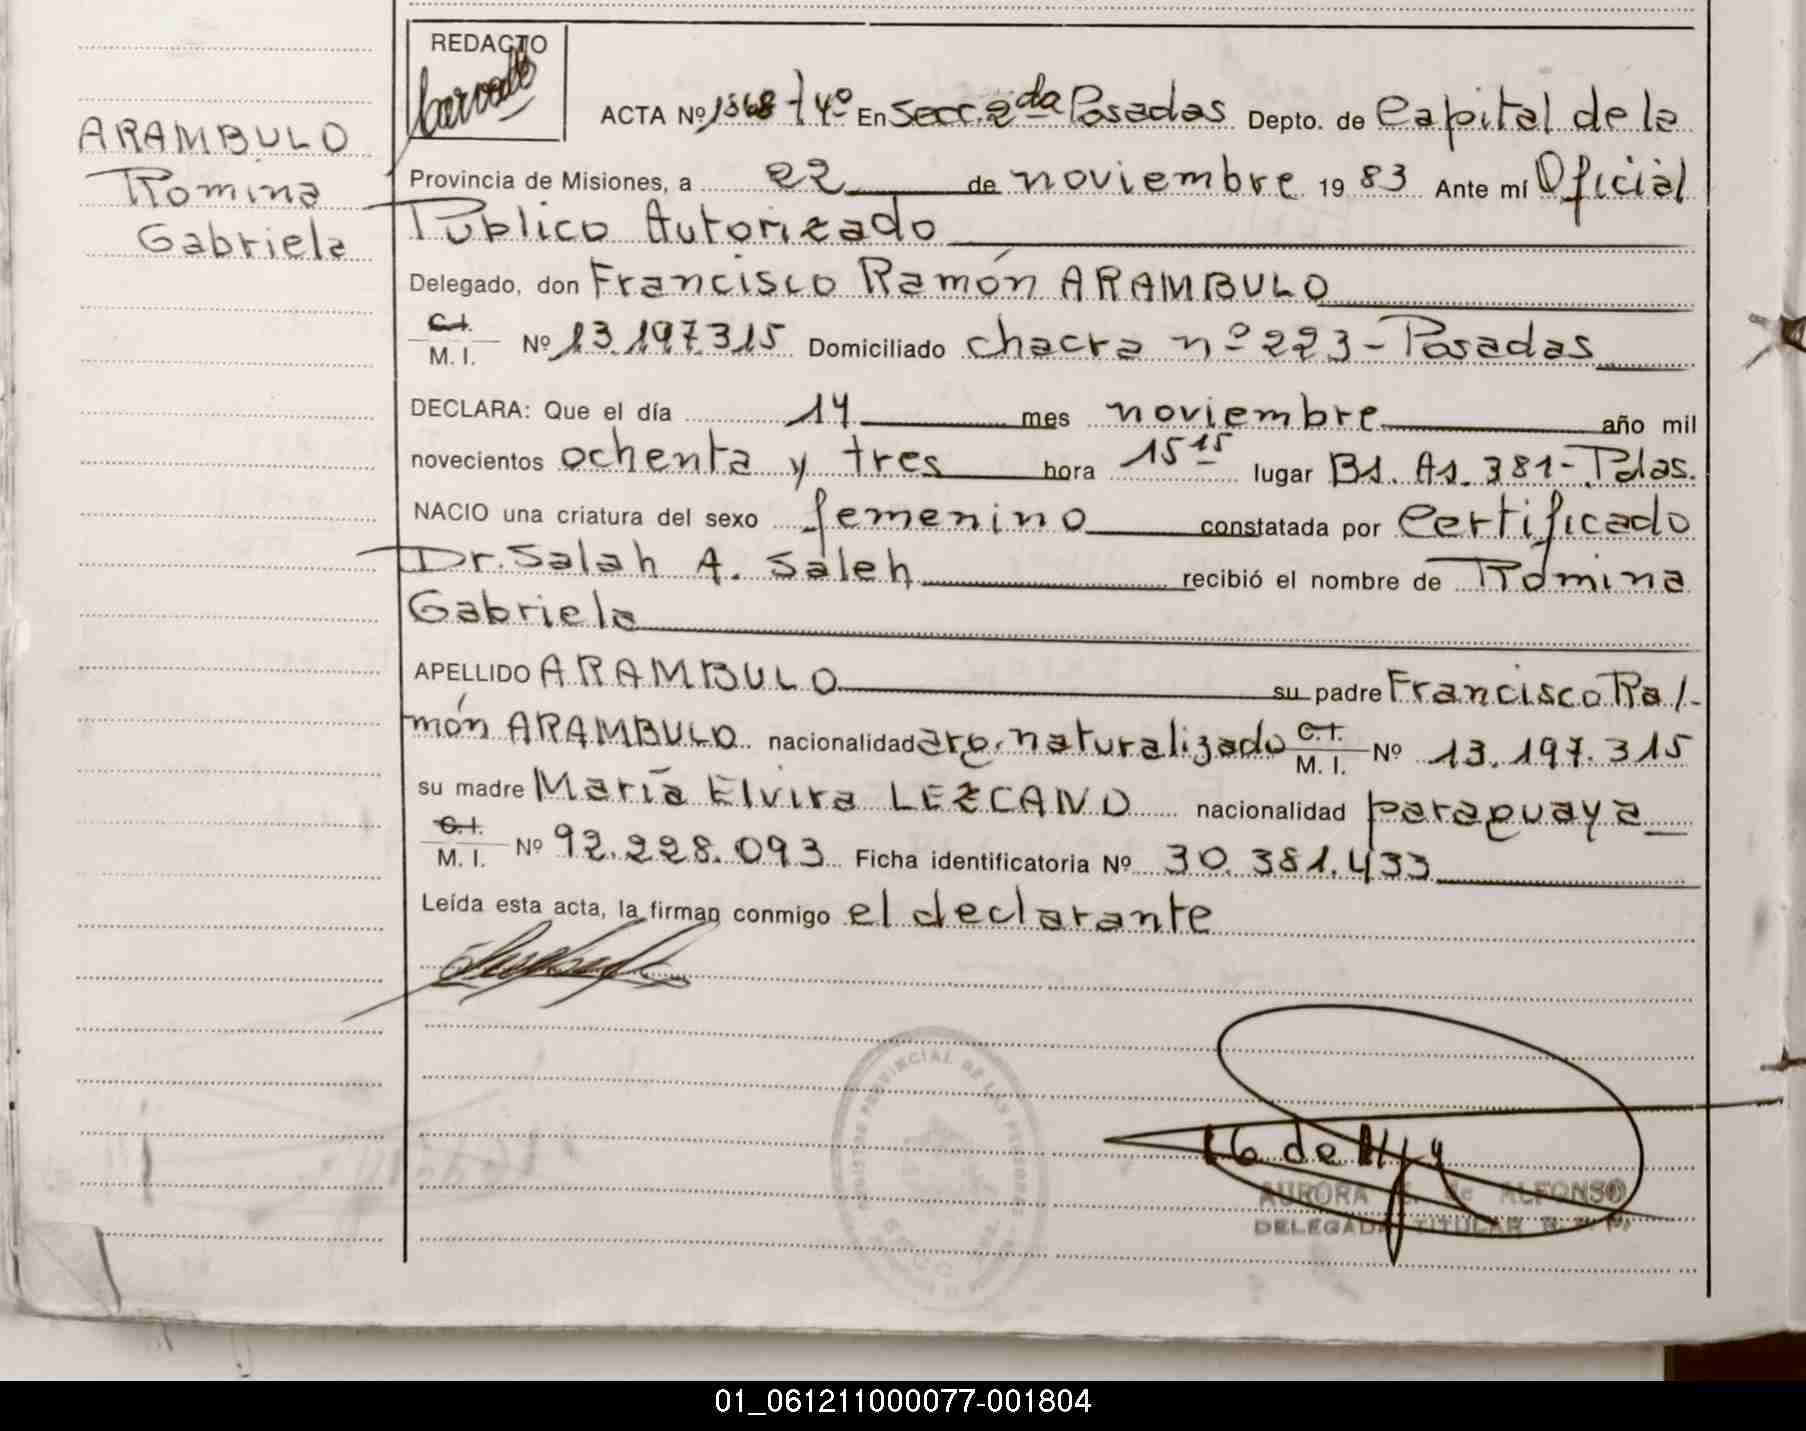 REDACTO
ACTA Nº 1868 t 4º En Secc. 2da Posadas Depto. de Capital de la
ARAMBULO
Romina
Gabriela
Provincia de Misiones, a 22 de noviembre 19 83 Ante mí Oficial
Público Autorizado
Delegado, don Francisco Ramón ARAMBULO
C.I.
M. I. Nº 13.197.315 Domiciliado chacra nº 223 - Posadas
DECLARA: Que el día 14 mes noviembre año mil
novecientos ochenta y tres hora 15 15 lugar Bs. As. 381 - Pdas.
NACIO una criatura del sexo femenino constatada por Certificado
Dr. Salah A. Saleh recibió el nombre de Romina
Gabriela
APELLIDO ARAMBULO su padre Francisco Ra/-
món ARAMBULO nacionalidad arg. naturalizado C.I. M. I. Nº 13.197.315
su madre María Elvira LEZCANO nacionalidad paraguaya
C.I.
M. I. Nº 92.228.093 Ficha identificatoria Nº 30.381.433
Leída esta acta, la firman conmigo el declarante
AURORA de ALFONSO
DELEGADA TITULAR
01_061211000077-001804